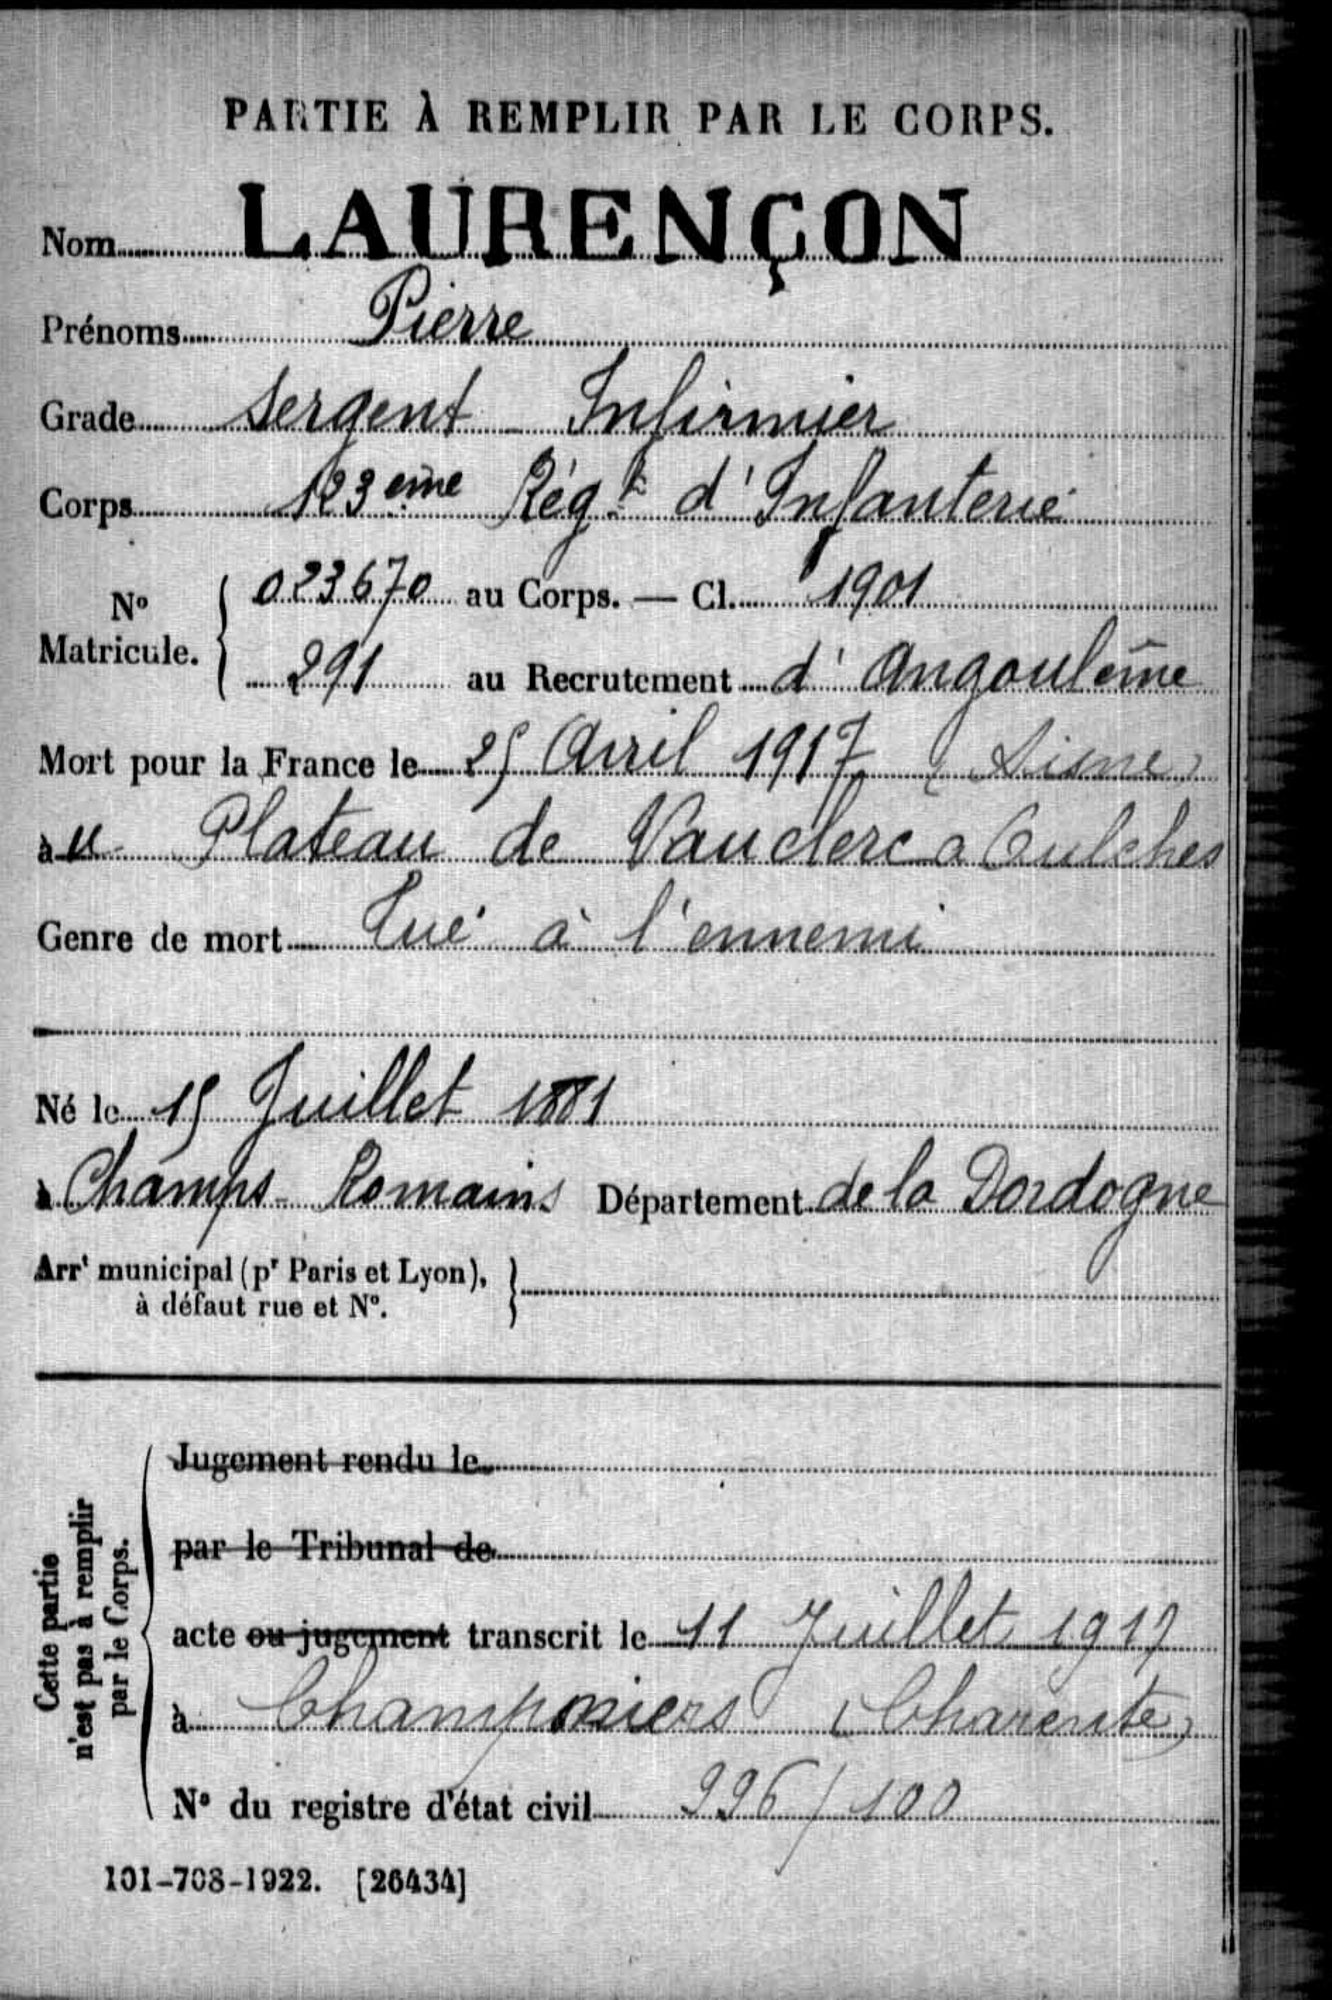 PARTIE À REMPLIR PAR LE CORPS.
Nom LAURENÇON
Prénoms Pierre
Grade Sergent Infirmier
Corps 123ème Régt d'Infanterie
No Matricule.
023670 au Corps. — Cl. 1901
291 au Recrutement d'Angoulême
Mort pour la France le 25 Avril 1917 (Aisne)
à u Plateau de Vauclerc a Oulches
Genre de mort Tué à l'ennemi
Né le 15 Juillet 1881
à Champs-Romains Département de la Dordogne
Arrt municipal (pr Paris et Lyon),
à défaut rue et No.
Cette partie
n'est pas à remplir
par le Corps.
Jugement rendu le
par le Tribunal de
acte ou jugement transcrit le 11 Juillet 1917
à Champniers (Charente)
No du registre d'état civil 996/100
101-708-1922. [26434]